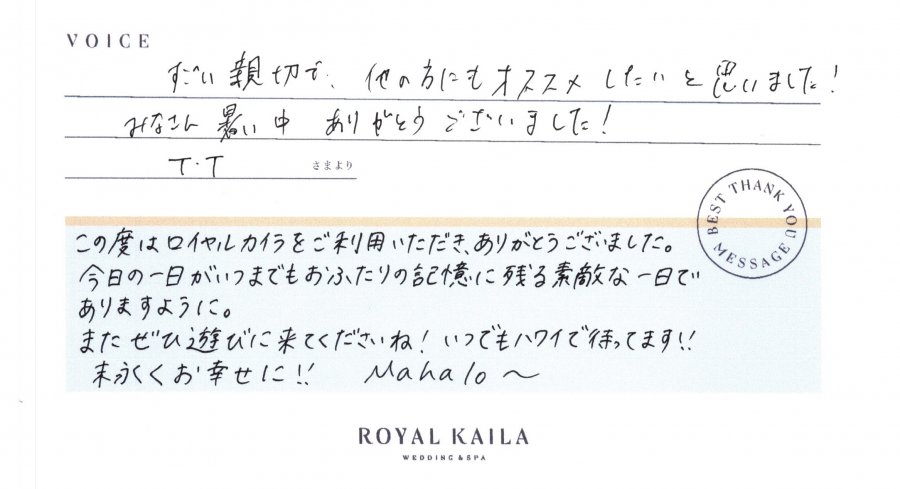 VOICE
すごい親切で、他の方にもオススメしたいと思いました!
みなさん暑い中 ありがとうございました!
T.T さまより
BEST THANK YOU MESSAGE
この度はロイヤルカイラをご利用いただき、ありがとうございました。
今日の一日がいつまでもおふたりの記憶に残る素敵な一日で
ありますように。
またぜひ遊びに来てくださいね! いつでもハワイで待ってます!!
末永くお幸せに!! Mahalo〜
ROYAL KAILA
WEDDING & SPA